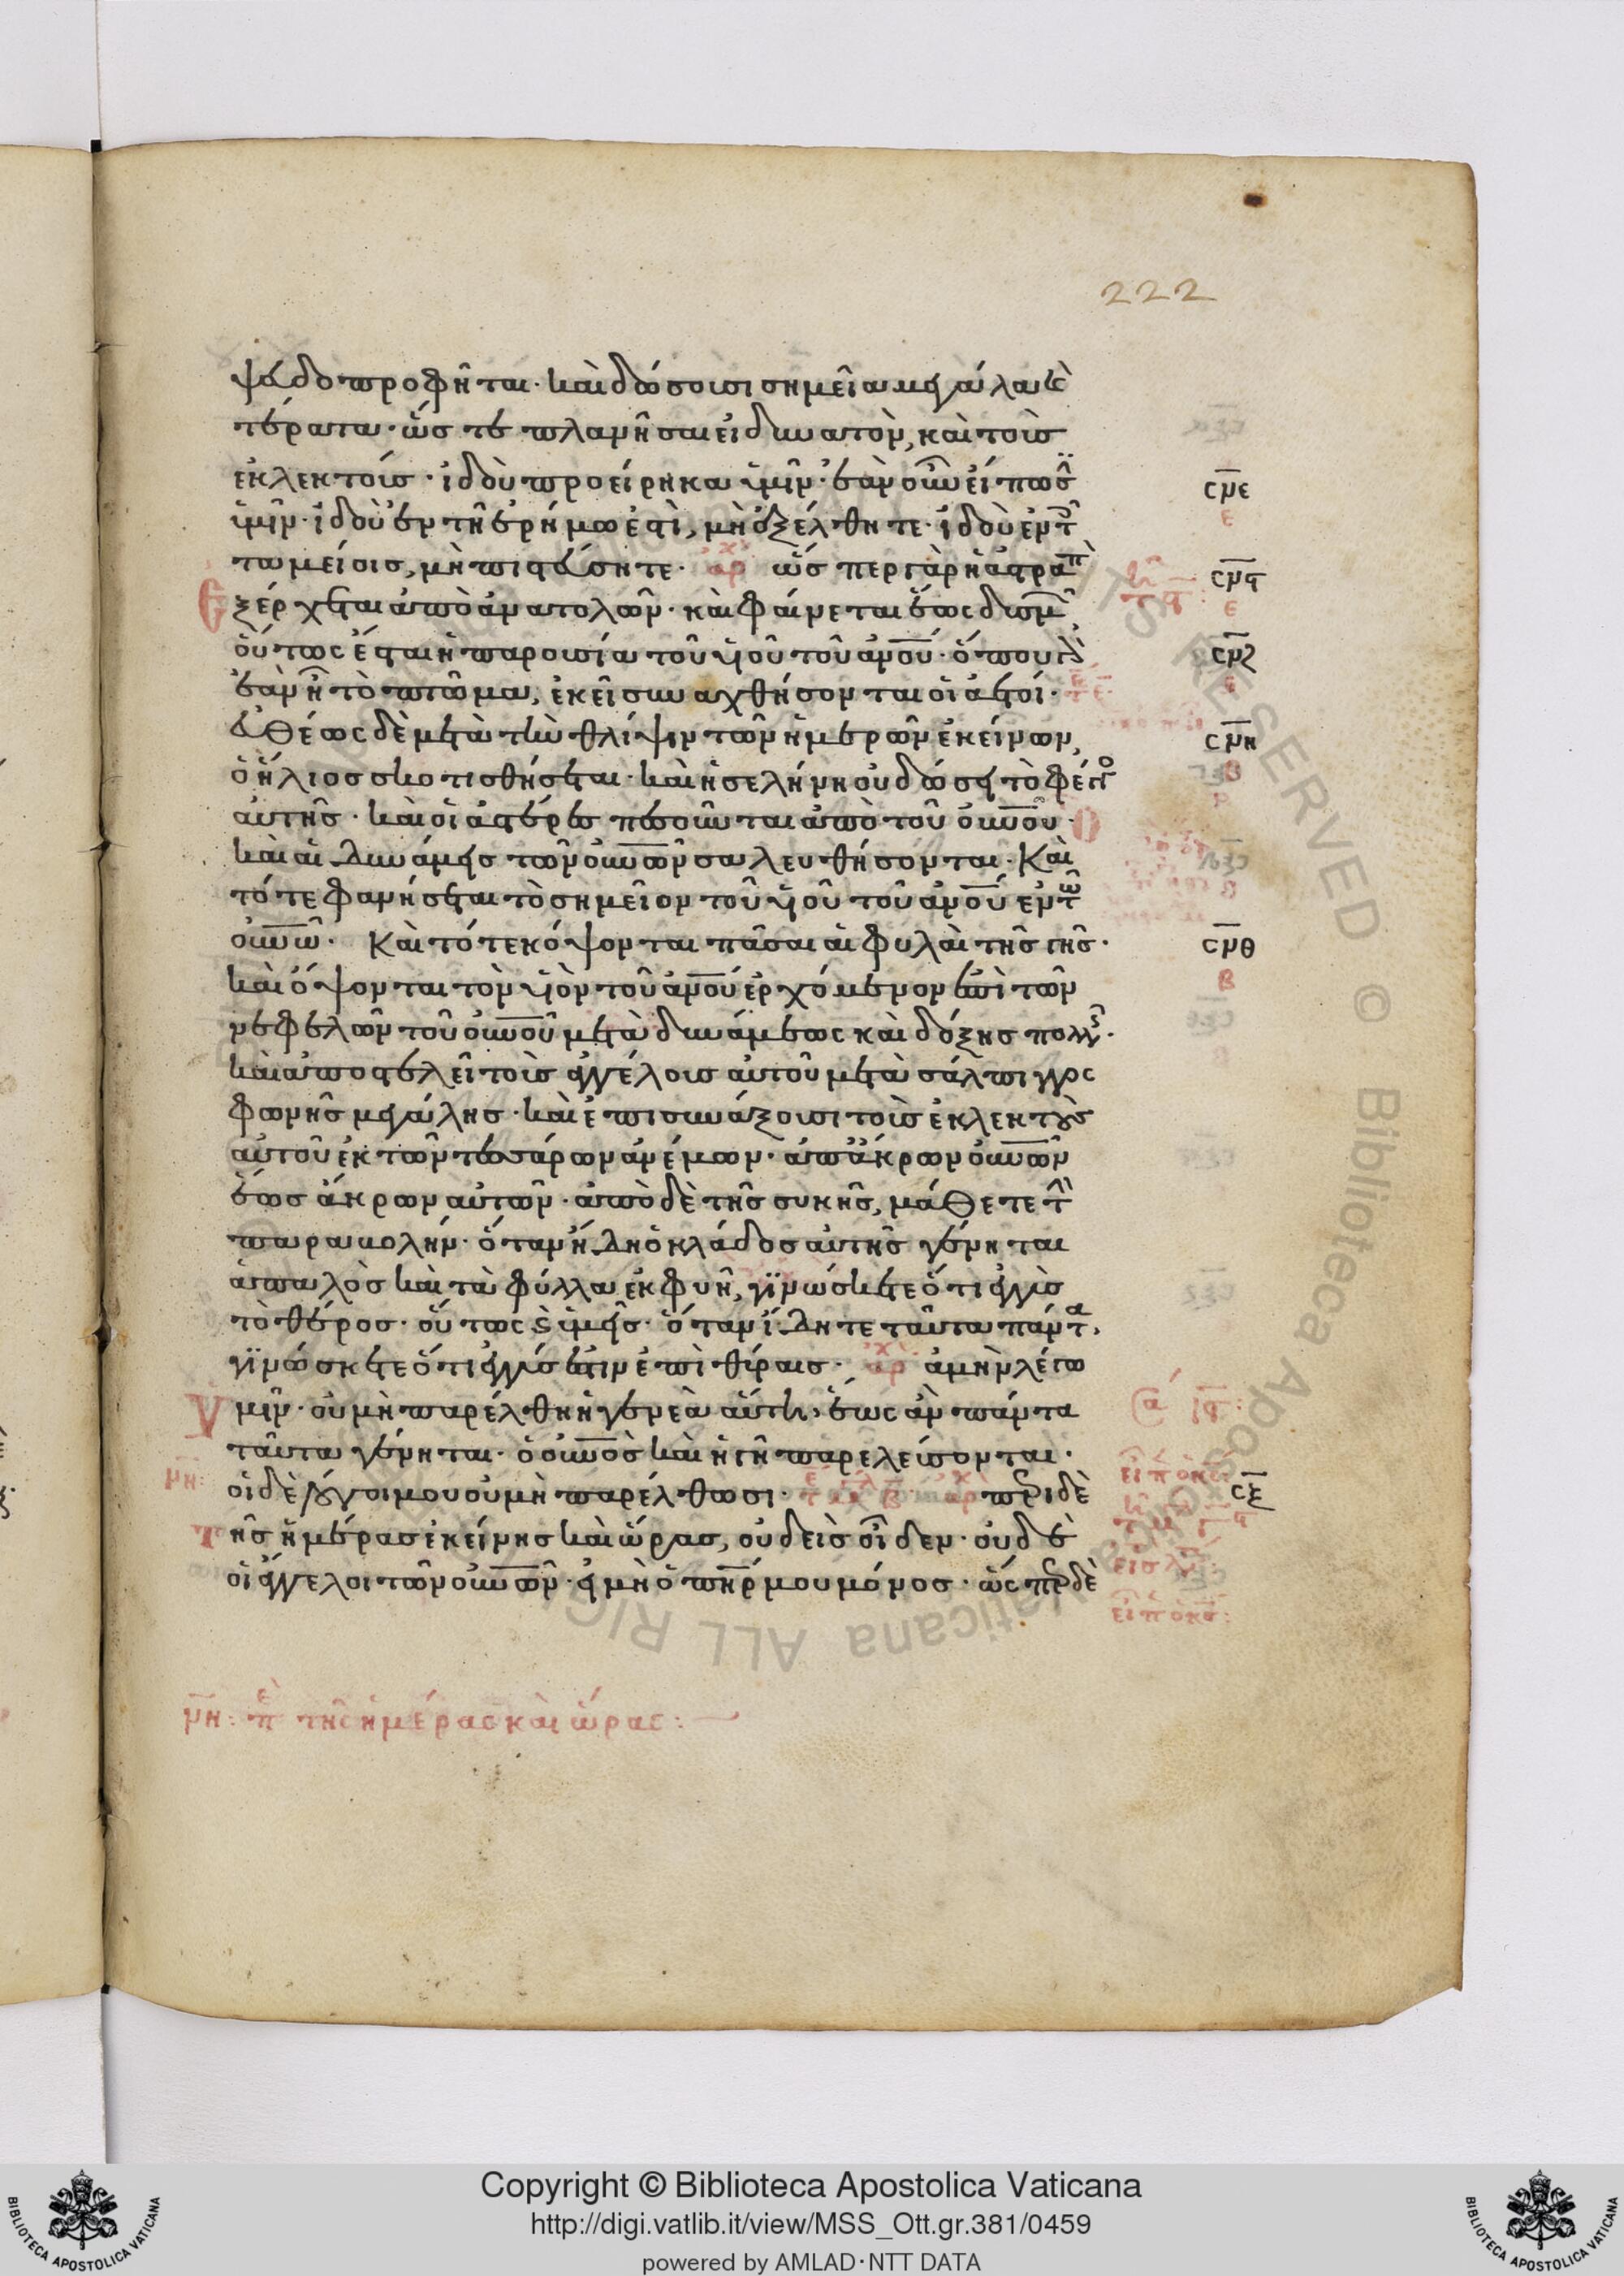 222
ψευδοπροφῆται· καὶ δώσουσι σημεῖα μεγάλα καὶ
τέρατα· ὥστε πλανῆσαι εἰ δυνατὸν, καὶ τοὺς
ἐκλεκτούς· ἰδοὺ προείρηκα ὑμῖν· ἐὰν οὖν εἴπωσϊ
ὑμῖν· ἰδοὺ ἐν τῆ ἐρήμω ἐστὶ, μὴ ἐξέλθητε· ἰδοὺ ἐν τοῖς
ταμείοις, μὴ πιστεύσητε· ἀρχ ὥσπερ γὰρ ἡ ἀστραπὴ
ἐξέρχεται ἀπὸ ἀνατολῶν· καὶ φαίνεται ἕως δυσμῶν,
οὕτως ἔσται ἡ παρουσία τοῦ υἱοῦ τοῦ ἀνου· ὅπου γὰρ
ἐὰν ἦ τὸ πτῶμα, ἐκεῖ συναχθήσονται οἱ ἀετοί·
εὐθέως δὲ μετὰ τὴν θλίψιν τῶν ἡμερῶν ἐκείνων,
ὁ ἥλιος σκοτισθήσεται· καὶ ἡ σελήνη οὐ δώσει τὸ φέγγος
αὐτῆς· καὶ οἱ ἀστέρες πεσοῦνται ἀπὸ τοῦ οὐνου·
καὶ αἱ δυνάμεις τῶν οὐνων σαλευθήσονται· Καὶ
τότε φανήσεται τὸ σημεῖον τοῦ υἱοῦ τοῦ ἀνου ἐν τῶ
οὐνω· Καὶ τότε κόψονται πᾶσαι αἱ φυλαὶ τῆς γῆς·
καὶ ὄψονται τὸν υἱὸν τοῦ ἀνου ἐρχόμενον ἐπὶ τῶν
νεφελῶν τοῦ οὐνου μετὰ δυνάμεως καὶ δόξης πολλῆς·
καὶ ἀποστελεῖ τοὺς ἀγγέλους αὐτοῦ μετὰ σάλπιγγος
φωνῆς μεγάλης· καὶ ἐπισυνάξουσι τοὺς ἐκλεκτοὺς
αὐτοῦ ἐκ τῶν τεσσάρων ἀνέμων· ἀπ' ἄκρων οὐνων
ἕως ἄκρων αὐτῶν· ἀπὸ δὲ τῆς συκῆς, μάθετε τὴν
παραβολήν· ὅταν ἤδη ὁ κλάδος αὐτῆς γένηται
ἁπαλὸς καὶ τὰ φύλλα ἐκφυῆ, γϊνώσκετε ὅτι ἐγγὺς
τὸ θέρος· οὕτως καὶ ὑμεῖς· ὅταν ἴδητε ταῦτα πάντα,
γϊνώσκετε ὅτι ἐγγύς ἐστιν ἐπὶ θύραις· ἀρχ ἀμὴν λέγω
Υμῖν· οὐ μὴ παρέλθη ἡ γενεὰ αὕτη· ἕως ἂν πάντα
ταῦτα γένηται· ὁ οὐνος καὶ ἡ γῆ παρελεύσονται·
οἱ δὲ λόγοι μου οὐ μὴ παρέλθωσι· περὶ δὲ
Της ἡμέρας ἐκείνης καὶ ὥρας, οὐδεὶς οἶδεν· οὐδὲ
οἱ ἄγγελοι τῶν οὐνων· εἰ μὴ ὁ πηρ μου μόνος· ὥσπερ δὲ
ϲμε
ε
ϲμϛ
ε
ϲμζ
ε
ϲμη
β
ϲμθ
β
ϲξ
μη:
μη: πε τῆς ἡμέρας καὶ ὥρας:
Copyright © Biblioteca Apostolica Vaticana
http://digi.vatlib.it/view/MSS_Ott.gr.381/0459
powered by AMLAD·NTT DATA
BIBLIOTECA APOSTOLICA VATICANA
BIBLIOTECA APOSTOLICA VATICANA